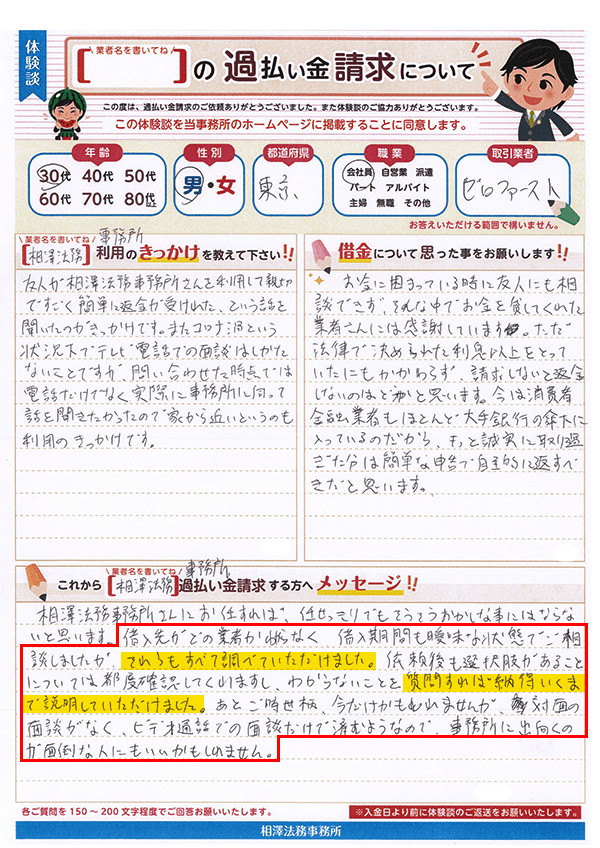 体験談
業者名を書いてね
[ ]の過払い金請求について
この度は、過払い金請求のご依頼ありがとうございました。また体験談のご協力ありがとうございます。
この体験談を当事務所のホームページに掲載することに同意します。
年齢
30代 40代 50代
60代 70代 80代以上
性別
男・女
都道府県
東京
職業
会社員 自営業 派遣
パート アルバイト
主婦 無職 その他
取引業者
ゼロファースト
お答えいただける範囲で構いません。
業者名を書いてね 事務所
[相澤法務]利用のきっかけを教えて下さい!!
友人が相澤法務事務所さんを利用して親切
ですごく簡単に返金が受けれた、という話を
聞いたのがきっかけです。またコロナ渦という
状況下でテレビ電話での面談はしかた
ないことですが、問い合わせた時点では
電話だけでなく実際に事務所に向って
話を聞きたかったので家から近いというのも
利用のきっかけです。
借金について思った事をお願いします!!
お金に困っている時に友人にも相
談できず、そんな中でお金を貸してくれた
業者さんには感謝しています。ただ
法律で決められた利息以上をとって
いたにもかかわらず、請求しないと返金
しないのはど
うかと思います。今は消費者
金融業者もほとんど大手銀行の傘下に
入っているのだから、もっと誠実に取り過
ぎた分は簡単な申告で自主的に返すべ
きだと思います。
業者名を書いてね 事務所
これから[相澤法務]過払い金請求する方へメッセージ!!
相澤法務事務所さんにお任すれば、任せっきりでもそうそうおかしな事にはならな
いと思います。借入先がどの業者か判らなく 借入期間も曖昧な状態でご相
談しましたが、それらもすべて調べていただけました。依頼後も選択肢があること
については都度確認してくれますし、わからないことを質問すれば納得いくま
で説明していただけました。あとご時世柄、今だけかもしれませんが、対面の
面談がなく、ビデオ通話での面談だけで済むようなので、事務所に出向くの
が面倒な人にもいいかもしれません。
各ご質問を150〜200文字程度でご回答お願いいたします。
※入金日より前に体験談のご返送をお願いいたします。
相澤法務事務所